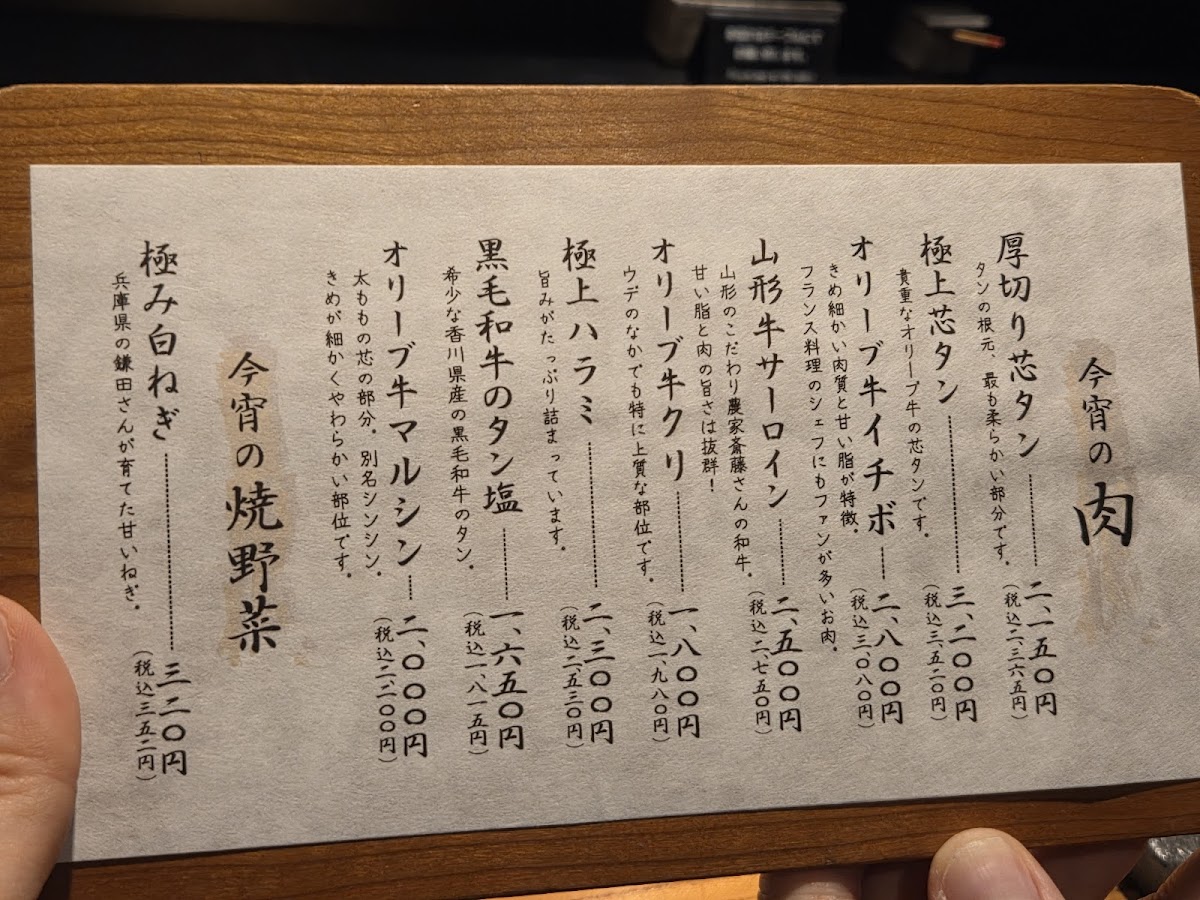 今宵の肉
厚切り芯タン 二、一五〇円
タンの根元、最も柔らかい部分です。
(税込二、三六五円)
極上芯タン 三、二〇〇円
貴重なオリーブ牛の芯タンです。
(税込三、五二〇円)
オリーブ牛イチボ 二、八〇〇円
きめ細かい肉質と甘い脂が特徴。
(税込三、〇八〇円)
フランス料理のシェフにもファンが多いお肉。
山形牛サーロイン 二、五〇〇円
山形のこだわり農家斎藤さんの和牛。
(税込二、七五〇円)
甘い脂と肉の旨さは抜群!
オリーブ牛クリ 一、八〇〇円
ウデのなかでも特に上質な部位です。
(税込一、九八〇円)
極上ハラミ 二、三〇〇円
旨みがたっぷり詰まっています。
(税込二、五三〇円)
黒毛和牛のタン塩 一、六五〇円
希少な香川県産の黒毛和牛のタン。
(税込一、八一五円)
オリーブ牛マルシン 二、〇〇〇円
太ももの芯の部分。別名シンシン。
(税込二、二〇〇円)
きめが細かくやわらかい部位です。
今宵の焼野菜
極み白ねぎ 三二〇円
兵庫県の鎌田さんが育てた甘いねぎ。
(税込三五二円)